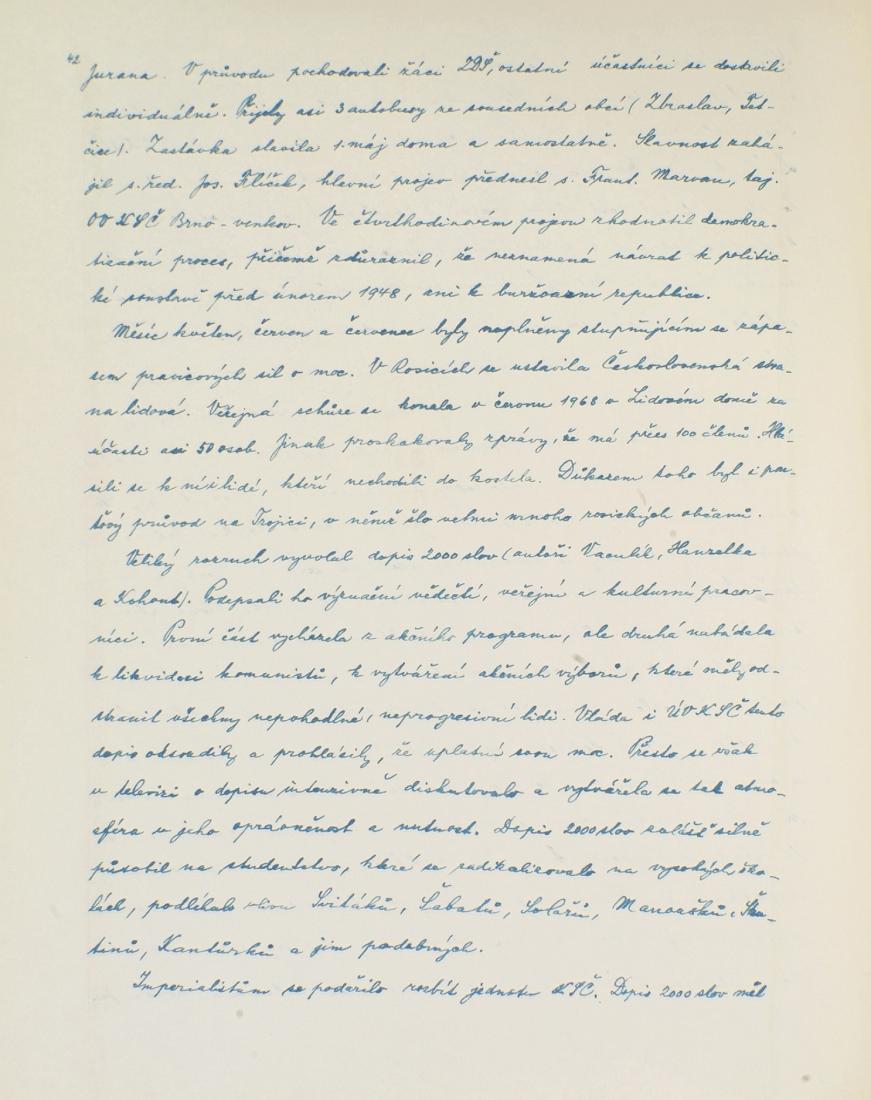 42
Jurana. V průvodu pochodovali žáci ZDŠ, ostatní účastníci se dostavili
individuálně. Přijely asi 3 autobusy ze sousedních obcí (Zbraslav, Tet-
čice). Zastávka slavila 1. máj doma a samostatně. Slavnost zahá-
jil s. řed. Jos. Flíček, hlavní projev přednesl s. Frant. Marvan, taj.
OV KSČ Brno-venkov. Ve čtvrthodinovém projevu zhodnotil demokra-
tizační proces, přičemž zdůraznil, že neznamená návrat k politic-
ké soustavě před únorem 1948, ani k buržoazní republice.
Měsíc květen, červen a červenec byly naplněny stupňujícím se zápa-
sem pravicových sil o moc. V Rosicích se ustavila Československá stra-
na lidová. Veřejná schůze se konala v červnu 1968 v Lidovém domě za
účasti asi 50 osob. Jinak proskakovaly zprávy, že má přes 100 členů. Hlá-
sili se k ní i lidé, kteří nechodili do kostela. Důkazem toho byl i pou-
ťový průvod na Trojici, v němž šlo velmi mnoho rosických občanů.
Veliký rozruch vyvolal dopis 2000 slov (autoři Vaculík, Hanzelka
a Kohout). Podepsali ho význační vědečtí, veřejní a kulturní pracov-
níci. První část vycházela z akčního programu, ale druhá nabádala
k likvidaci komunistů, k vytváření akčních výborů, které měly od-
stranit všechny nepohodlné, neprogresivní lidi. Vláda i ÚV KSČ tento
dopis odsoudily a prohlásily, že uplatní svou moc. Přesto se však
v televizi o dopisu intenzivně diskutovalo a vytvářela se tak atmo-
sféra v jeho oprávněnost a nutnost. Dopis 2000 slov zvlášť silně
působil na studentstvo, které se radikalizovalo na vysokých ško-
lách, podléhalo vlivu Svitáků, Šabatů, Solařů, Manoušků, Šku-
tinů, Kantůrků a jim podobných.
Imperialistům se podařilo rozbít jednotu KSČ. Dopis 2000 slov měl